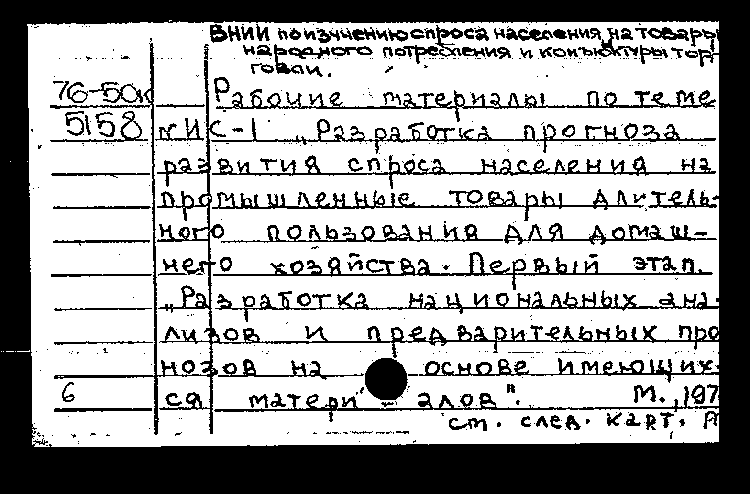 ВНИИ по изучению спроса населения на товары
народного потребления и конъюктуры тор-
говли.
76-50к Рабочие материалы по теме
5158 №ИС-1 „Разработка прогноза
развития спроса населения на
промышленные товары длитель-
ного пользования для домаш-
него хозяйства. Первый этап.
„Разработка национальных ана-
лизов и предварительных про
нозов на основе имеющих-
6 ся материалов". М., 197
см. след. карт.